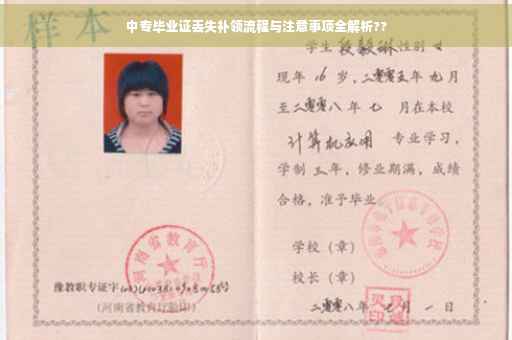 中专毕业证丢失补领流程与注意事项全解析??
样本
学生段毅琳性别女
现年16岁,二零零五年九月
至二零零八年七 月在本校
计算机应用 专业学习,
学制三年,修业期满,成绩
合格,准予毕业
学校(章)
校长(章)
二零零八年七月一日
河南省教育厅
豫教职专证字
(河南省教育厅验印)